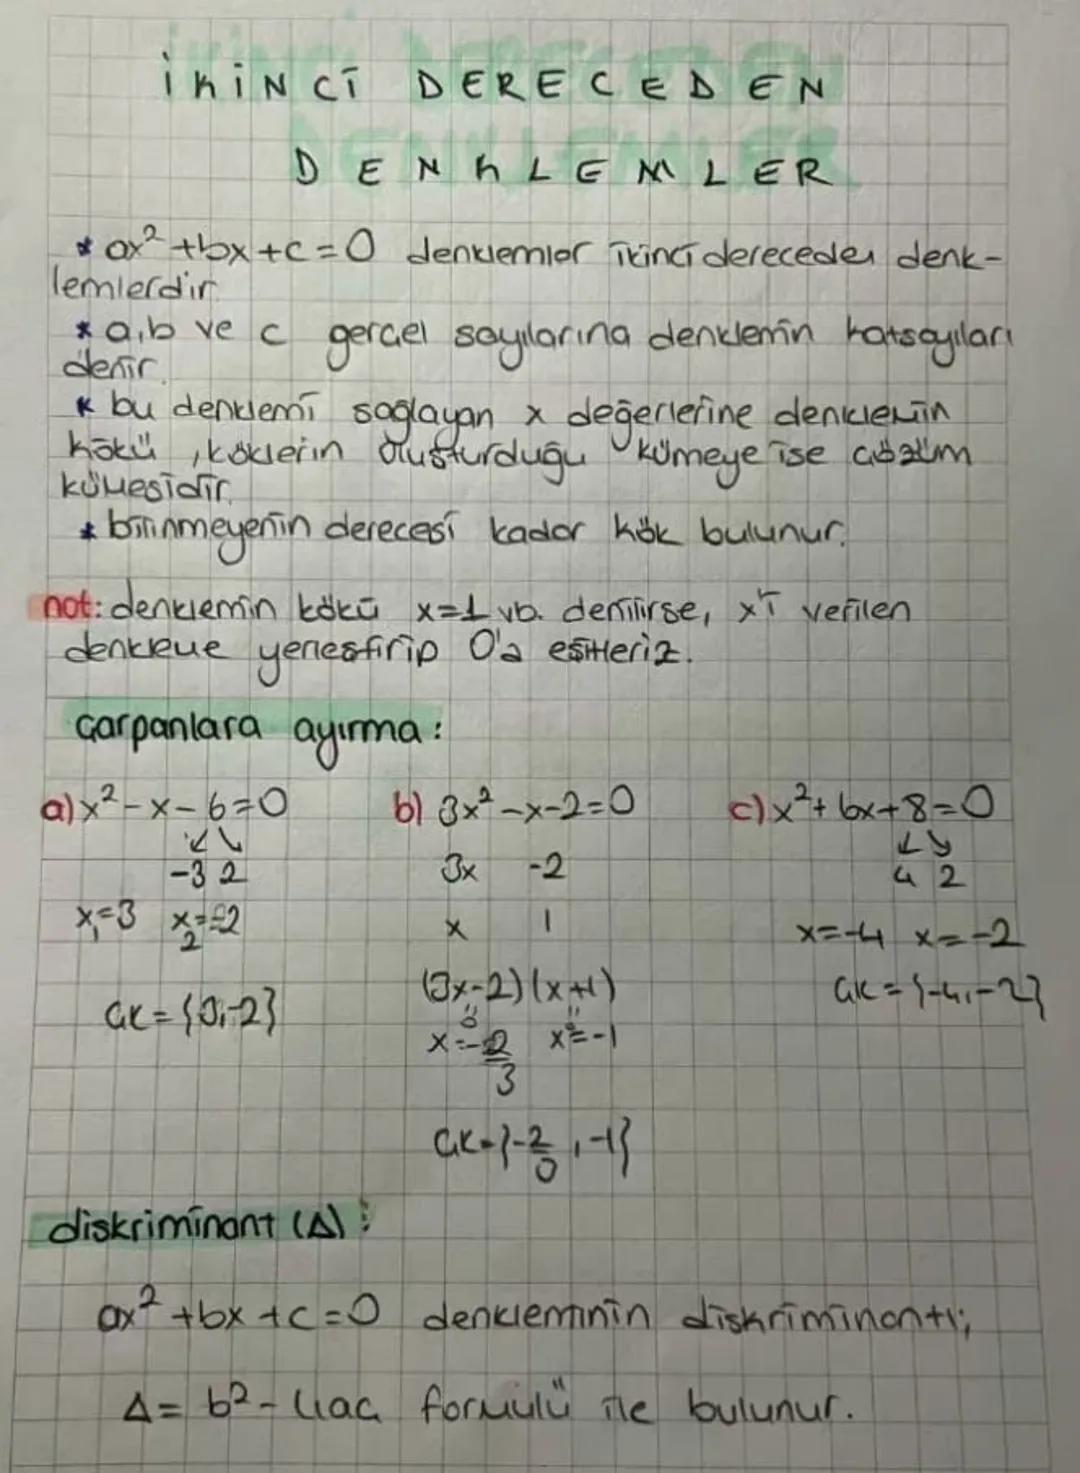 İKİNCİ DERECEDEN
DENKLEMLER
* ax² + bx + c = 0 denklemler ikinci dereceden denk-
lemlerdir.
* a,b ve c gerçel sayılarına denklemin katsayıları
denir.
* bu denklemi sağlayan x değerlerine denklemin
kökü, köklerin oluşturduğu kümeye ise çözüm
kümesidir.
* bilinmeyenin derecesi kadar kök bulunur.
not: denklemin kökü x=1 vb. denilirse, x'i verilen
denkleme yerleştirip 0'a eşitleriz.
çarpanlara ayırma:
a) x² - x - 6 = 0 b) 3x² - x - 2 = 0 c) x² + 6x + 8 = 0
-3 2 3x -2 4 2
x₁=3 x₂=-2 x 1 x=-4 x=-2
(3x-2)(x+1) ÇK = {-4,-2}
ÇK = {3,-2} x=-2/3 x=-1
ÇK={-2/3, -1}
diskriminant (Δ):
ax² + bx + c = 0 denkleminin diskriminantı;
Δ = b² - 4ac formülü ile bulunur.